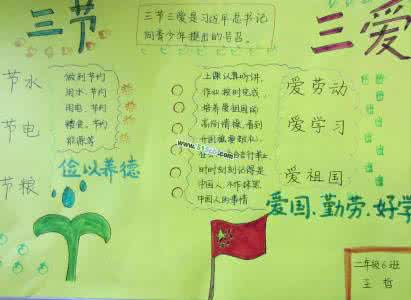 三节
三节三爱是习近平总书记
向青少年提出的号召。
三爱
节水
节电
节粮
做到节约
用水、节约
用电、节约
粮食、节约
能源等
俭以养德
上课认真听讲,
作业按时完成,
培养爱祖国的
高尚情操,看到
时时刻刻记得是
中国人,不作抹黑
中国人的事情
爱劳动
爱学习
爱祖国
爱国、勤劳、好学
二年级6班
王哲